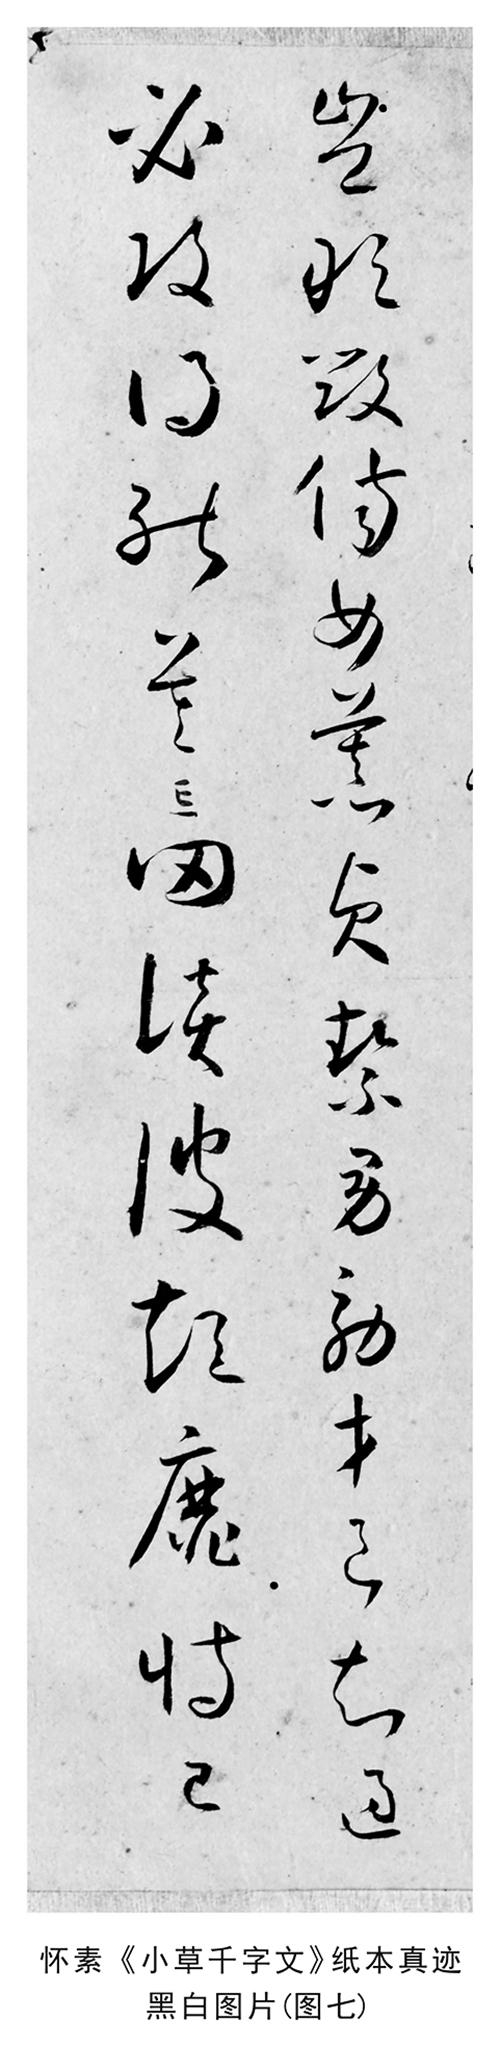 豈敢毀傷女慕貞絜男効才良知過
必改得能莫忘罔談彼短靡恃己
怀素《小草千字文》纸本真迹
黑白图片(图七)